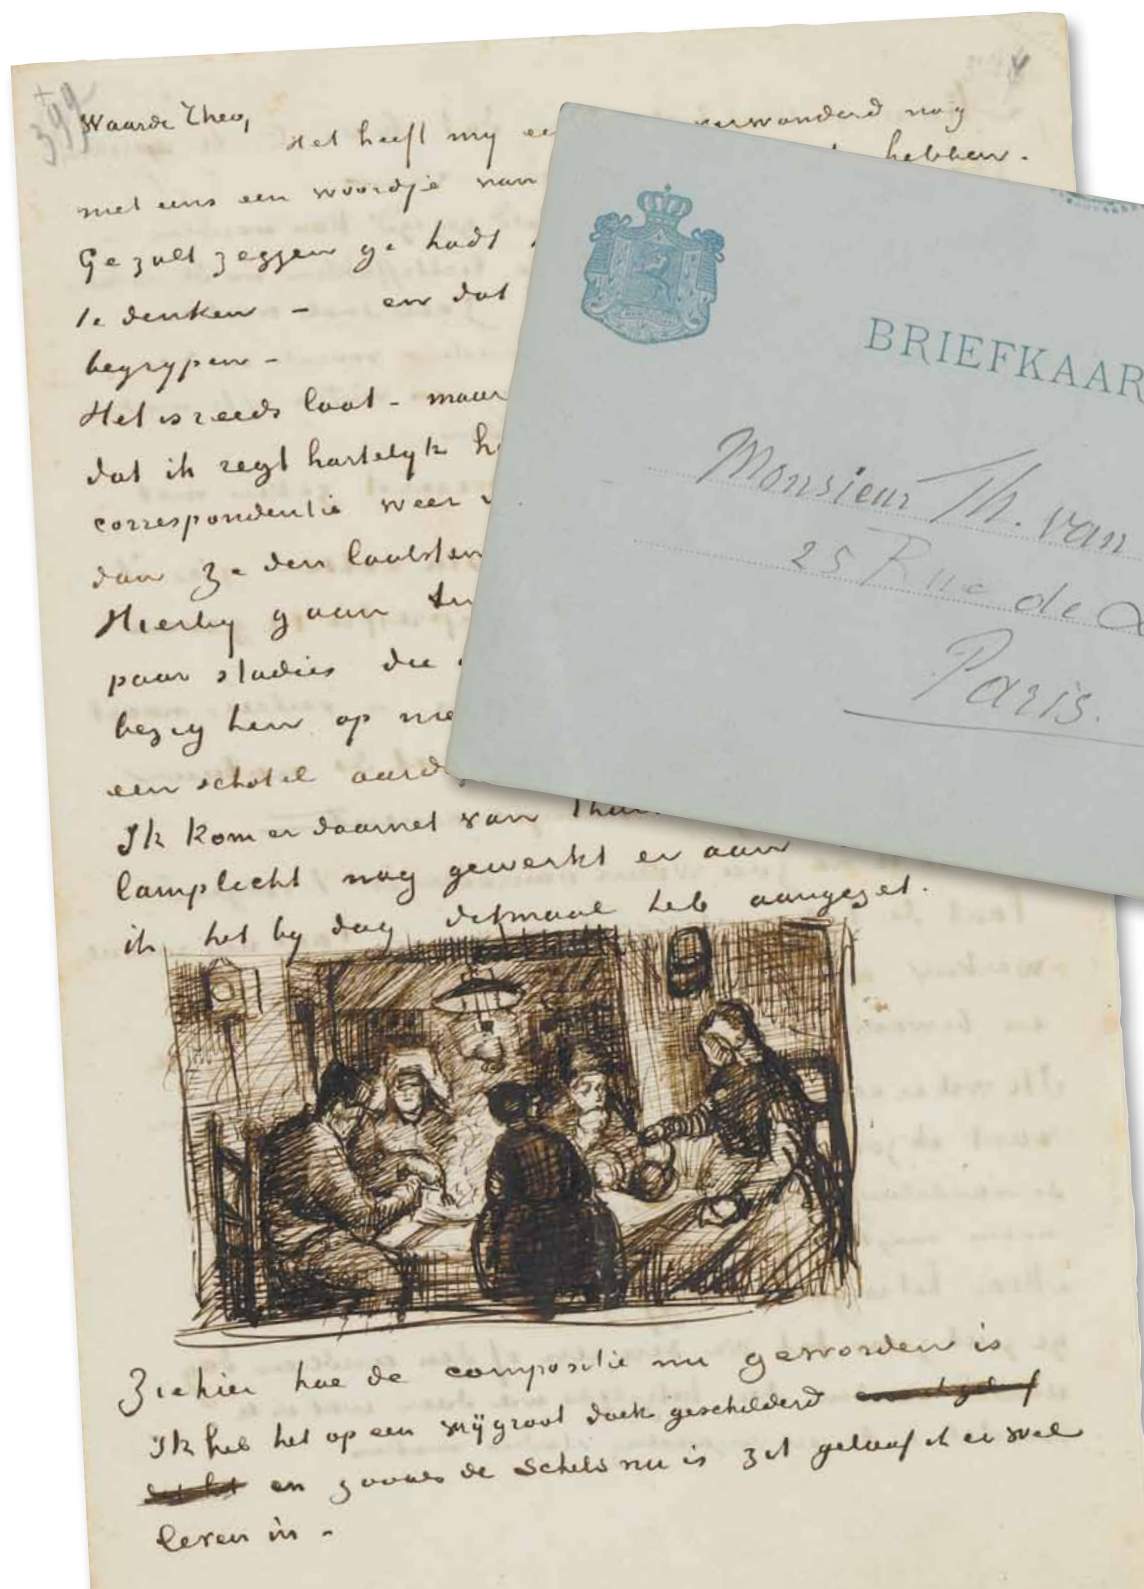 392
Waarde Theo,
Het heeft my verwonderd nog
hebben.
met eens een woordje van
Ge zult zeggen ge hadt
te denken – en dat
begrypen –
Het is reeds laat – maar
dat ik regt hartelyk
correspondentie weer
dan ze den laatsten
Hierby gaan
paar studies die
bezig ben op
een schotel
Ik kom er daarnet van
lamplicht nog gewerkt er aan
ik het by dag ditmaal heb aangezet.
Ziehier hoe de compositie nu geworden is
Ik heb het op een vrij groot doek geschilderd
en zooals de schets nu is zit geloof ik er wel
leven in –
BRIEFKAAR
Monsieur Th. van
25 Rue de
Paris.